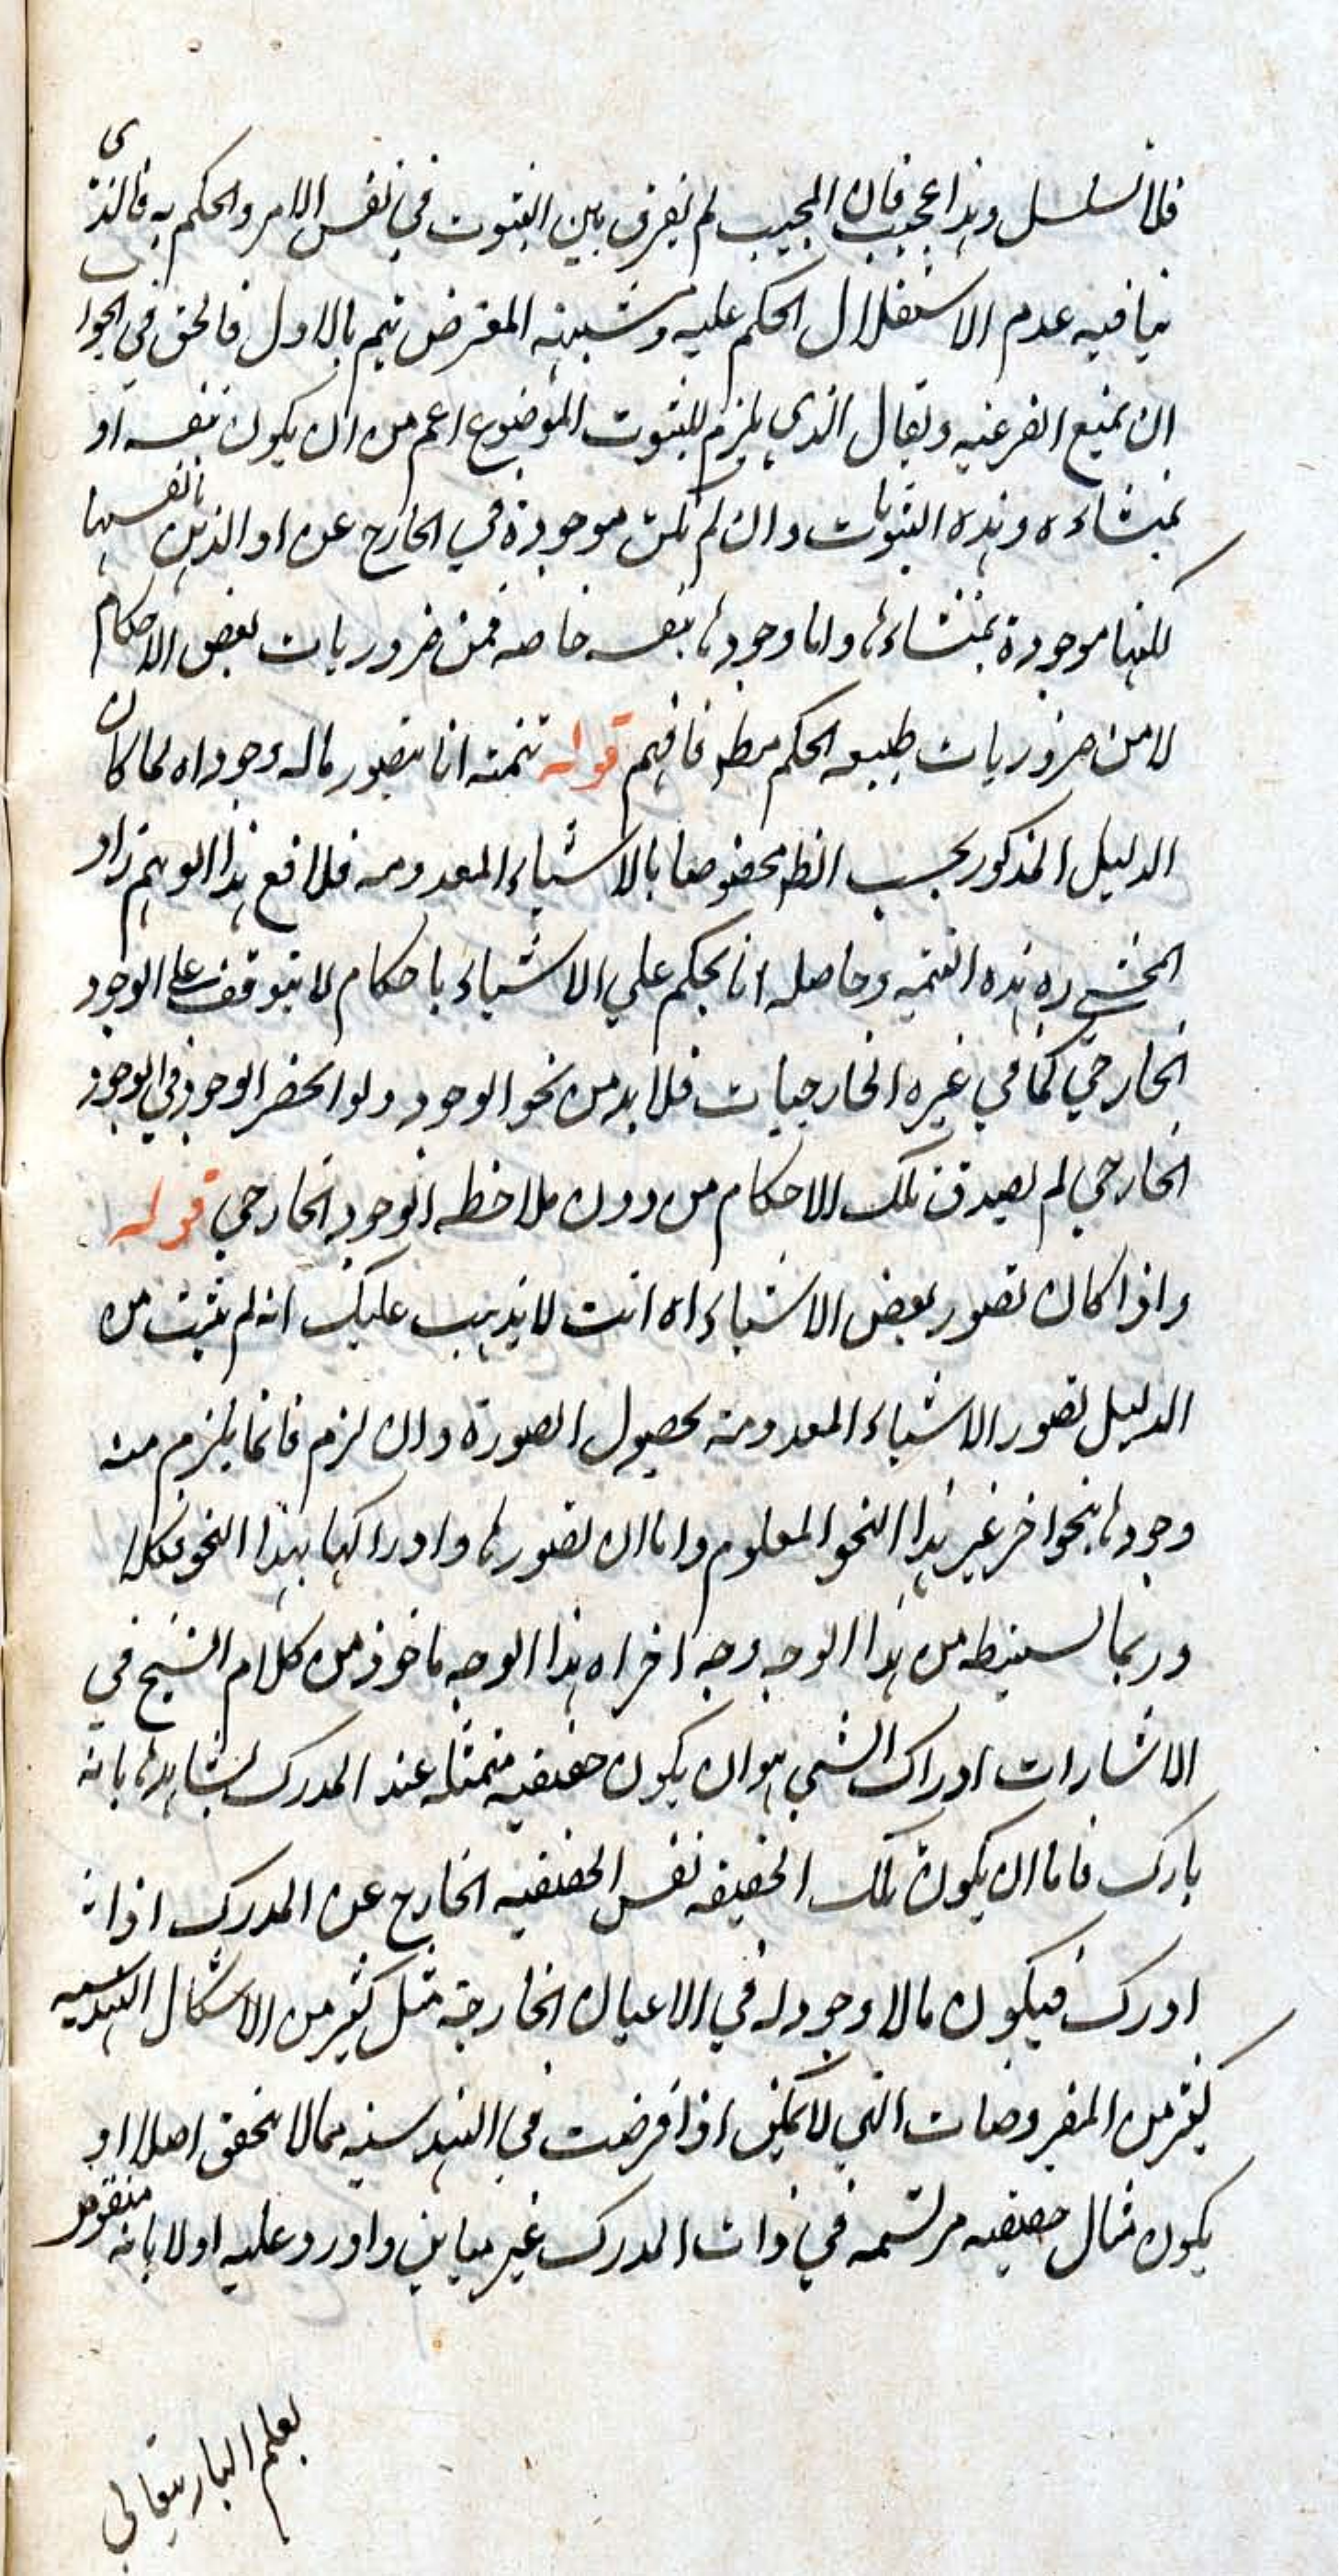 فلا تسلسل وهذا عجيب فان المجيب لم يفرق بين الثبوت في نفس الامر والحكم به فالذى
ينافيه عدم الاستقلال الحكم عليه وشبهة المعترض تتم بالاول فالحق في الجواب
ان يمنع الفرعية ويقال الذي يلزم للثبوت الموضوع اعم من ان يكون بنفسه او
بمنشاءه وهذه الثبوتات وان لم تكن موجودة في الخارج عن او الذهن بانفسها
لكنها موجودة بمنشاءها واما وجودها بنفسه خاصة فمن ضروريات بعض الاحكام
لا من ضروريات طبيعة الحكم مط فافهم قوله تتمته انا نتصور ماله وجود اه لما كان
الدليل المذكور بحسب الظ مخصوصا بالاشياء المعدومه فلدفع هذا الوهم زاد
المحشي ره هذه التتمه وحاصله انا نحكم علي الاشياء باحكام لا تتوقف على الوجود
الخارجي كما في غيره الخارجيات فلا بد من نحو الوجود ولو انحصر الوجود في الوجود
الخارجي لم يصدق تلك الاحكام من دون ملاحظه الوجود الخارجي قوله
واذا كان تصور بعض الاشياء اه انت لا يذهب عليك انه لم يثبت من
الدليل تصور الاشياء المعدومة بحصول الصورة وان لزم فانما يلزم منه
وجودها بنحو اخر غير هذا النحو المعلوم واما ان تصورها وادراكها بهذا النحو فكلا
وربما يستنبط من هذا الوجه وجه اخر اه هذا الوجه ماخوذ من كلام الشيخ في
الاشارات ادراك الشي هو ان يكون حقيقيه متمثله عند المدرك يشاهدها بانه
يدرك فاما ان يكون تلك الحقيقه نفس الحقيقيه الخارج عن المدرك اذا انه
ادرك فيكون مالا وجود له في الاعيان الخارجة مثل كثير من الاشكال الهندسيه
كثير من المفروضات التي لا تمكن اذا فرضت في الهندسيه مما لا يتحقق اصلا او
يكون مثال حقيقيه مرتسمه في ذات المدرك غير مباين واورد عليه اولا بانه منقوض
بعلم الباري تعالي